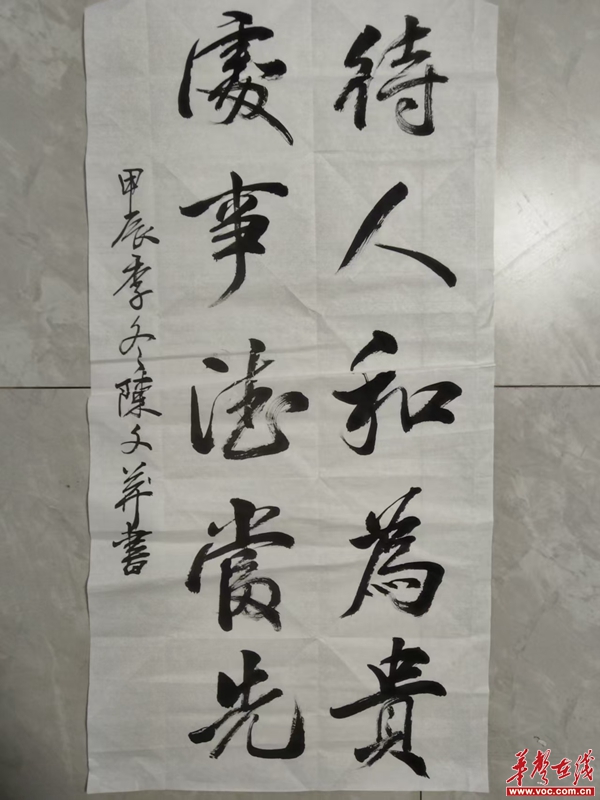 待人和為貴
處事德當先
甲辰季冬陳文書
華声在线
www.voc.com.cn